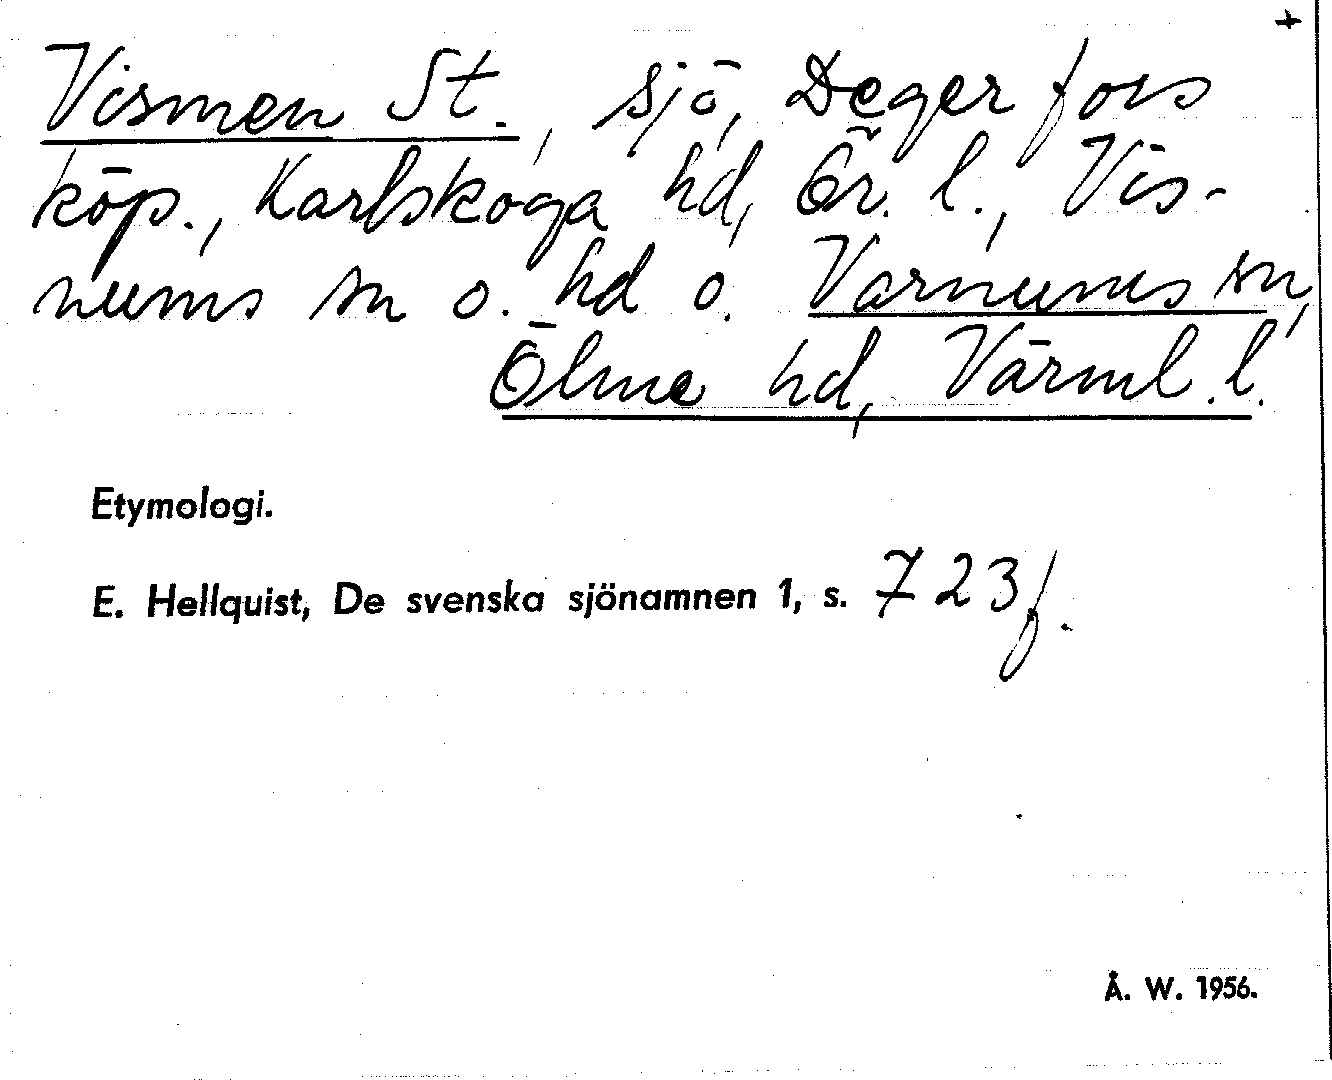 +
Vismen St., sjö, Degerfors
köp., Karlskoga hd, Ör. l., Vis-
nums sn o. hd o. Varnums sn,
Ölme hd, Värml. l.
Etymologi.
E. Hellquist, De svenska sjönamnen 1, s. 723 f.
Å. W. 1956.